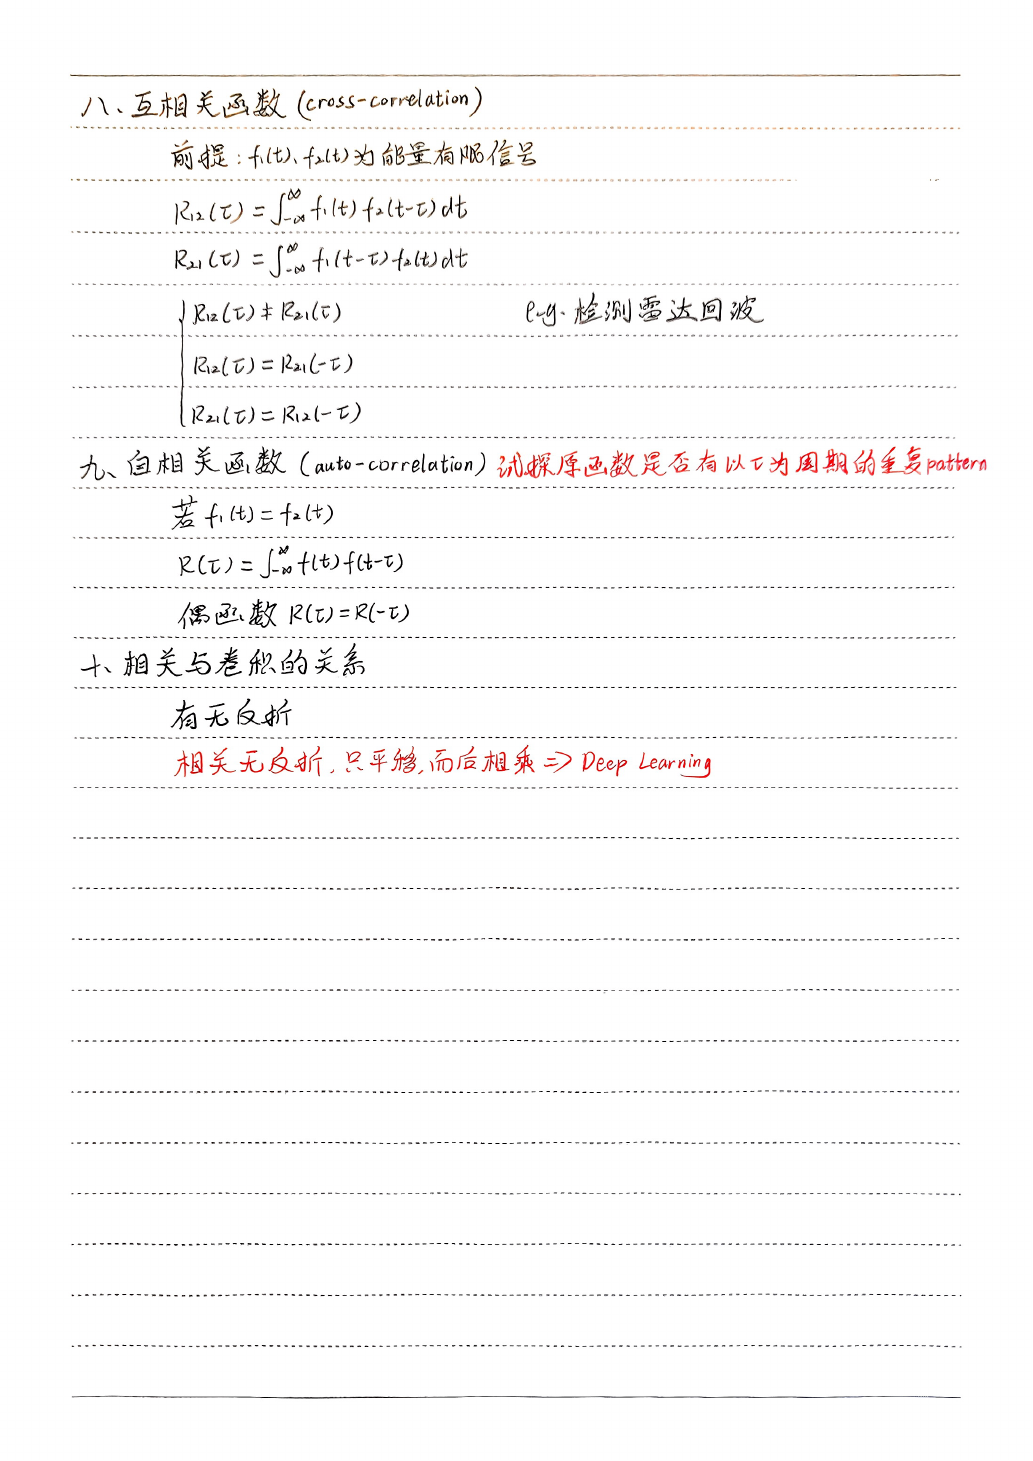 八、互相关函数 (cross-correlation)
前提：f₁(t)、f₂(t)为能量有限信号
R₁₂(τ) = ∫_{-∞}^{∞} f₁(t) f₂(t-τ) dt
R₂₁(τ) = ∫_{-∞}^{∞} f₁(t-τ) f₂(t) dt
R₁₂(τ) ≠ R₂₁(τ) e.g. 检测雷达回波
R₁₂(τ) = R₂₁(-τ)
R₂₁(τ) = R₁₂(-τ)
九、自相关函数 (auto-correlation) 试探原函数是否有以τ为周期的重复pattern
若 f₁(t) = f₂(t)
R(τ) = ∫_{-∞}^{∞} f(t) f(t-τ)
偶函数 R(τ) = R(-τ)
十、相关与卷积的关系
有无反折
相关无反折,只平移,而后相乘 => Deep Learning